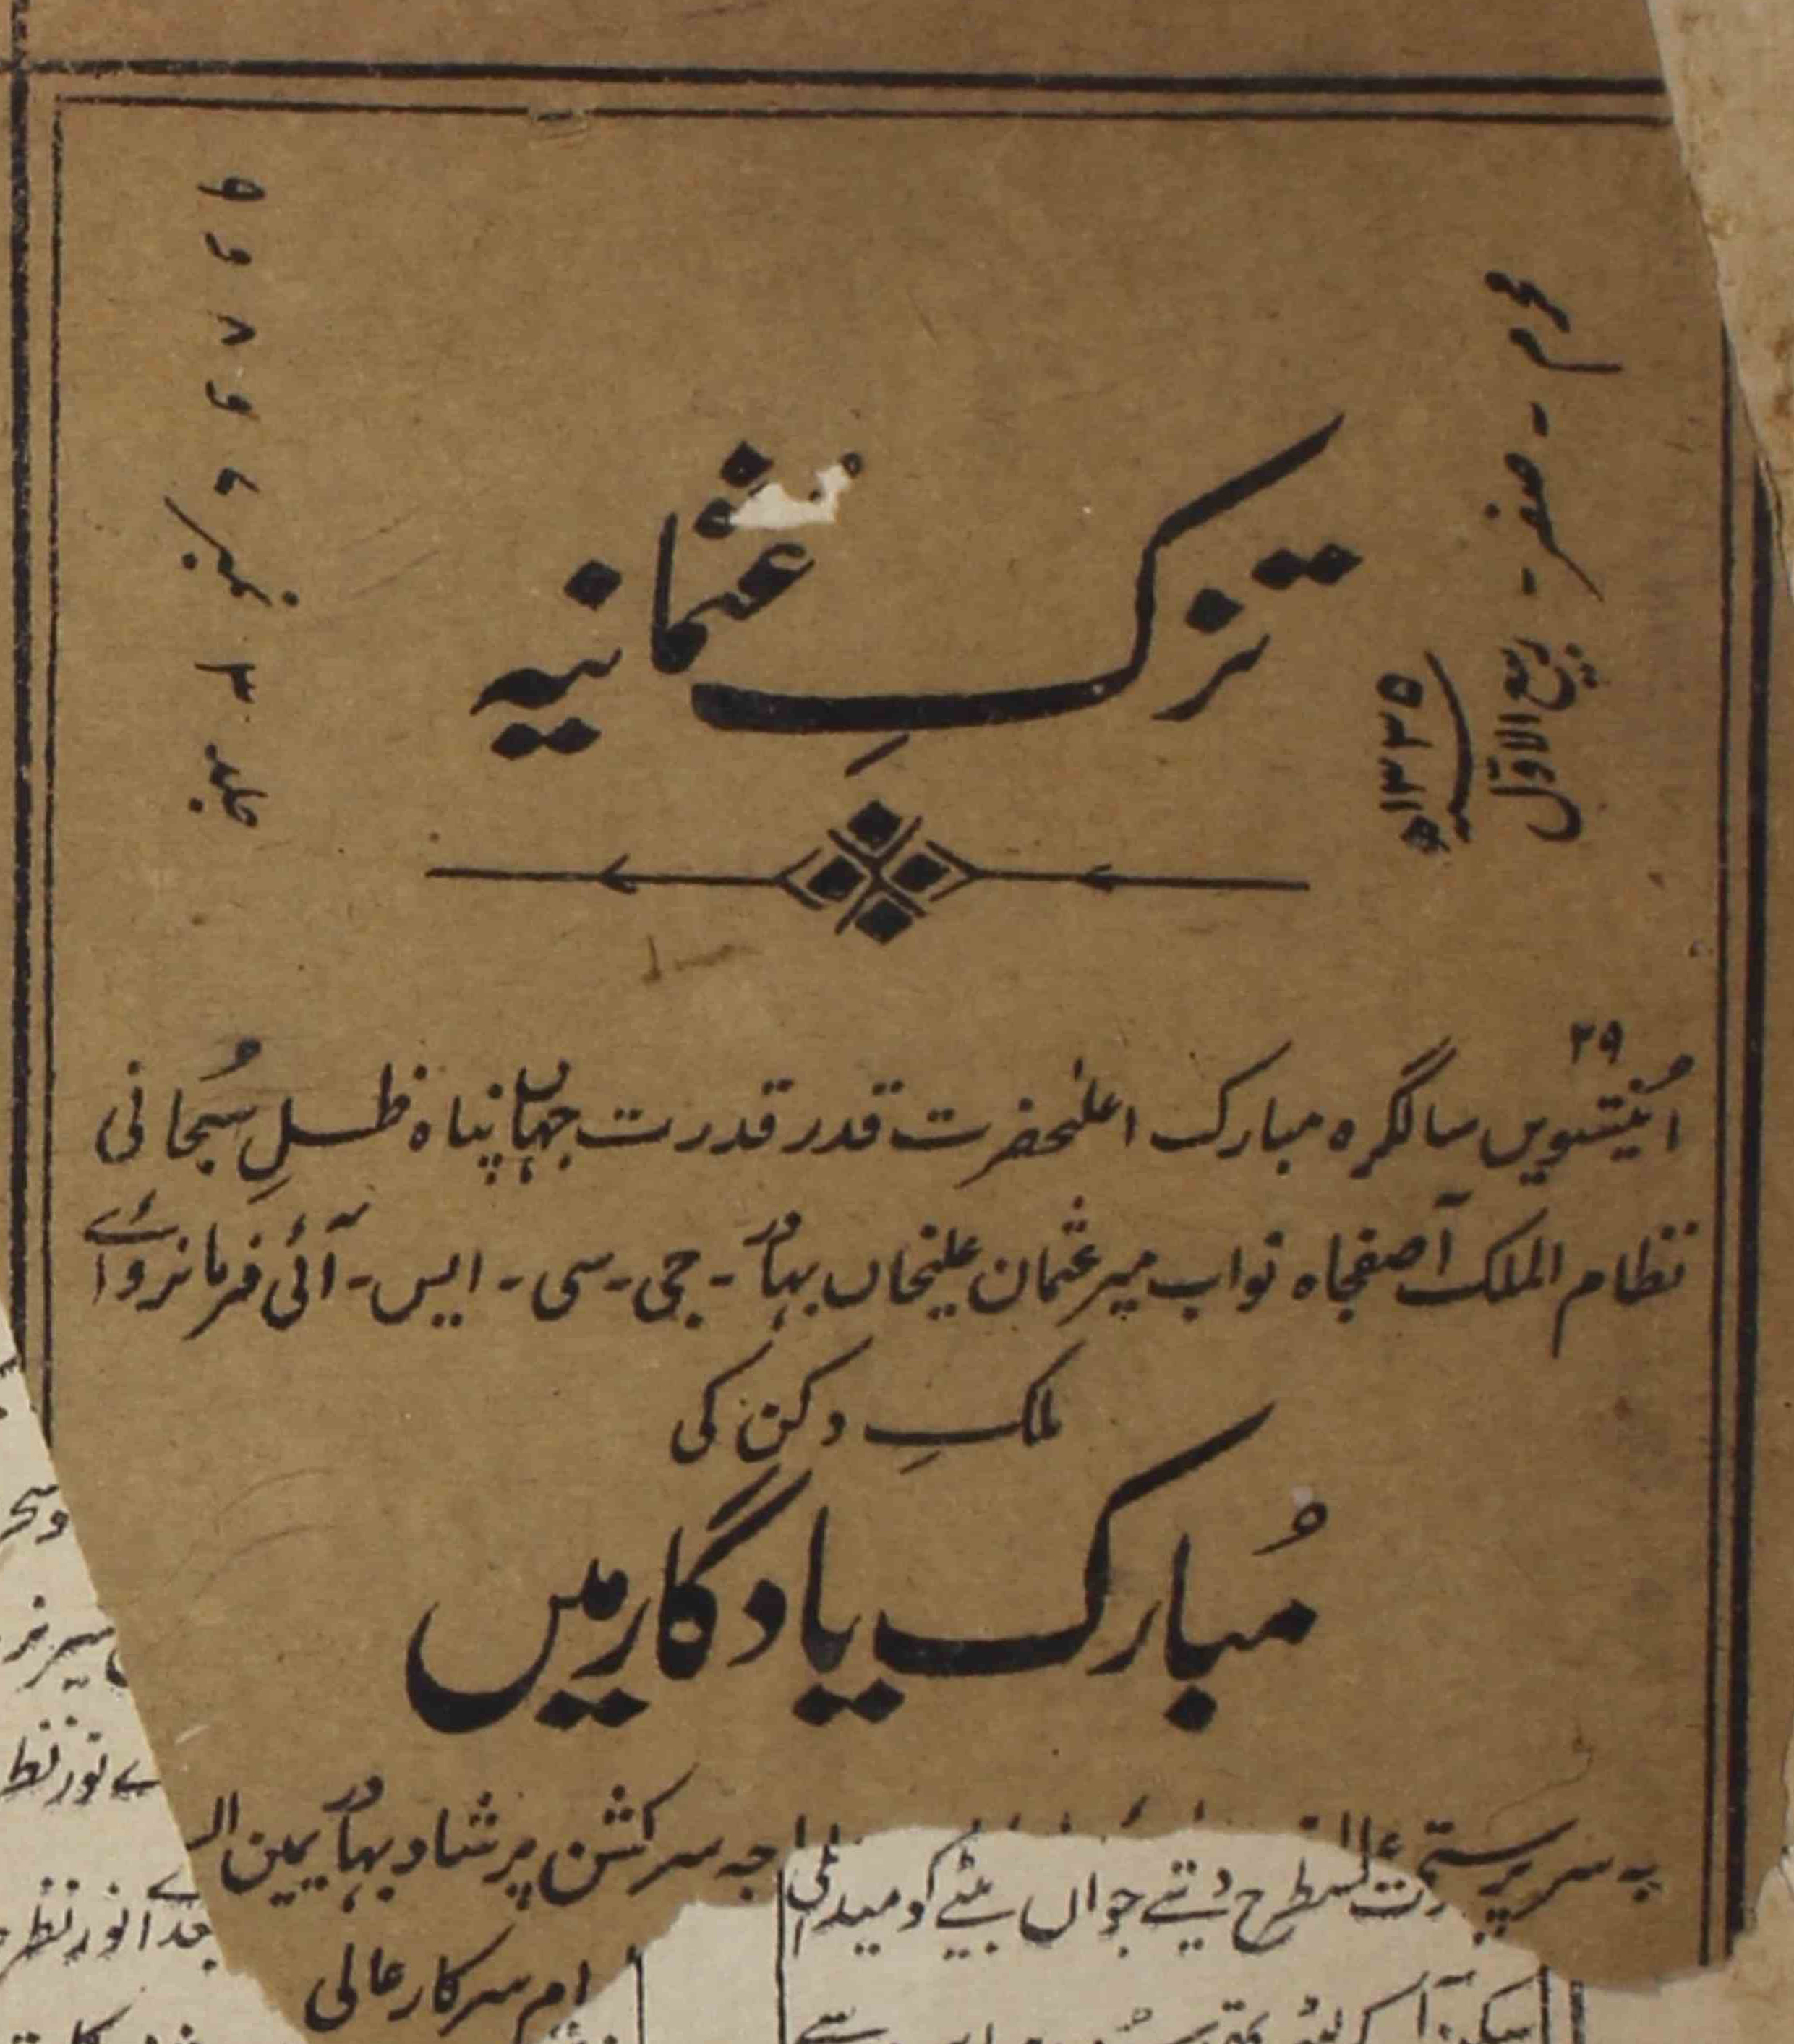 محرم - صفر - ربیع الاوّل
۱۳۳۵ھ
جلد ۳ نمبر ۷ و ۸ و ۹
تزکِ عثمانیہ
۲۹
اُنتیسویں سالگرہ مبارک اعلٰحضرت قدر قدرت جہاں پناہ ظلِ سُبحانی
نظام الملک آصفجاہ نواب میر عثمان علیخاں بہادر - جی - سی - ایس - آئی فرمانروائے
ملکِ دکن کی
مُبارک یادگار میں
بہ سرپرستی
اجہ سرکشن پرشاد بہادر یمین الـ
رت اسطرح دیتے جواں بیٹے کو میداں کی
ام سرکار عالی
وسحر
میر
ے نور نظر
انور نظر